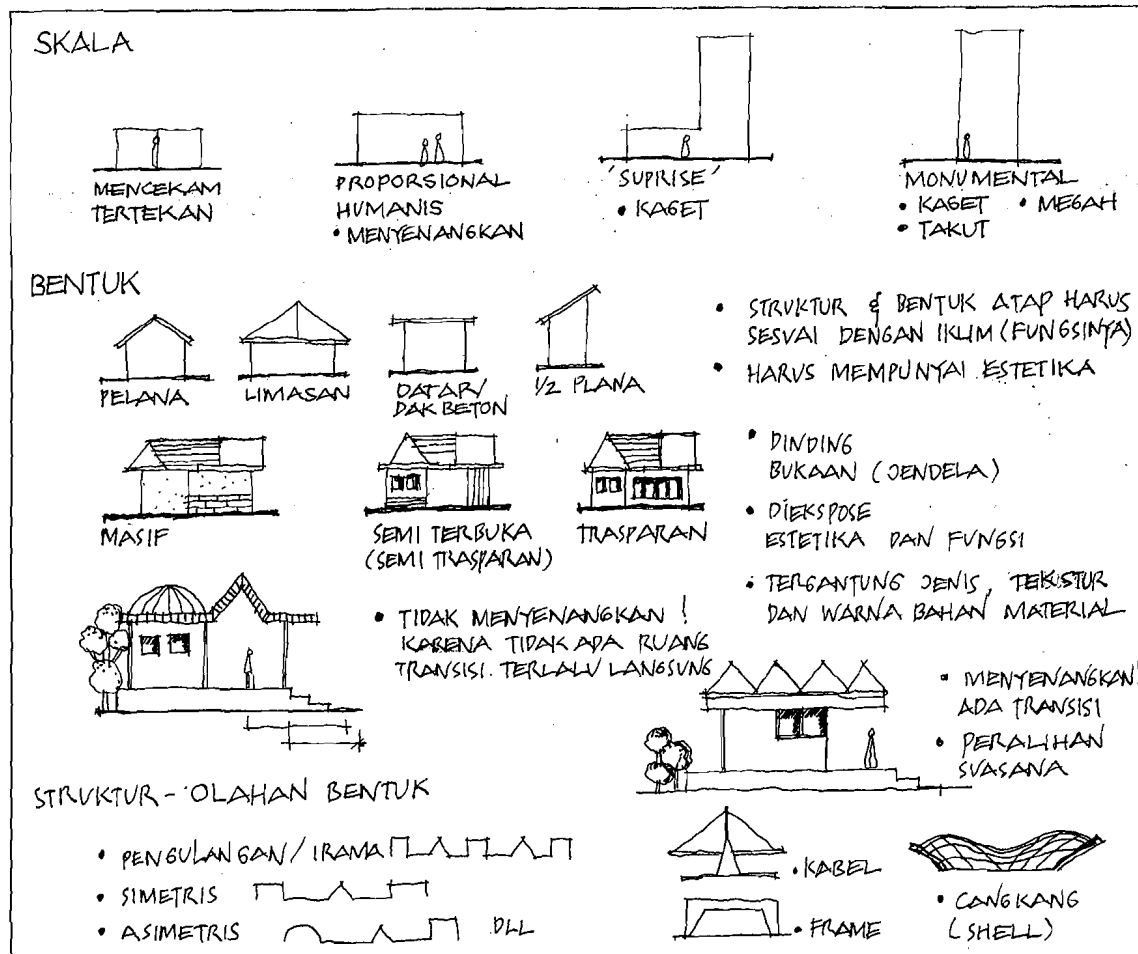 SKALA
MENCEKAM
TERTEKAN
PROPORSIONAL
HUMANIS
• MENYENANGKAN
'SUPRISE'
• KAGET
MONUMENTAL
• KAGET • MEGAH
• TAKUT
BENTUK
PELANA
LIMASAN
DATAR/
DAK BETON
1/2 PLANA
• STRUKTUR & BENTUK ATAP HARUS
SESUAI DENGAN IKLIM (FUNGSINYA)
• HARUS MEMPUNYAI ESTETIKA
MASIF
SEMI TERBUKA
(SEMI TRASPARAN)
TRASPARAN
• DINDING
BUKAAN (JENDELA)
• DIEKSPOSE
ESTETIKA DAN FUNGSI
• TERGANTUNG JENIS, TEKSTUR
DAN WARNA BAHAN MATERIAL
• TIDAK MENYENANGKAN !
KARENA TIDAK ADA RUANG
TRANSISI. TERLALU LANGSUNG
• MENYENANGKAN!
ADA TRANSISI
• PERALIHAN
SUASANA
STRUKTUR - OLAHAN BENTUK
• PENGULANGAN / IRAMA
• SIMETRIS
• ASIMETRIS DLL
• KABEL
• FRAME
• CANGKANG
(SHELL)